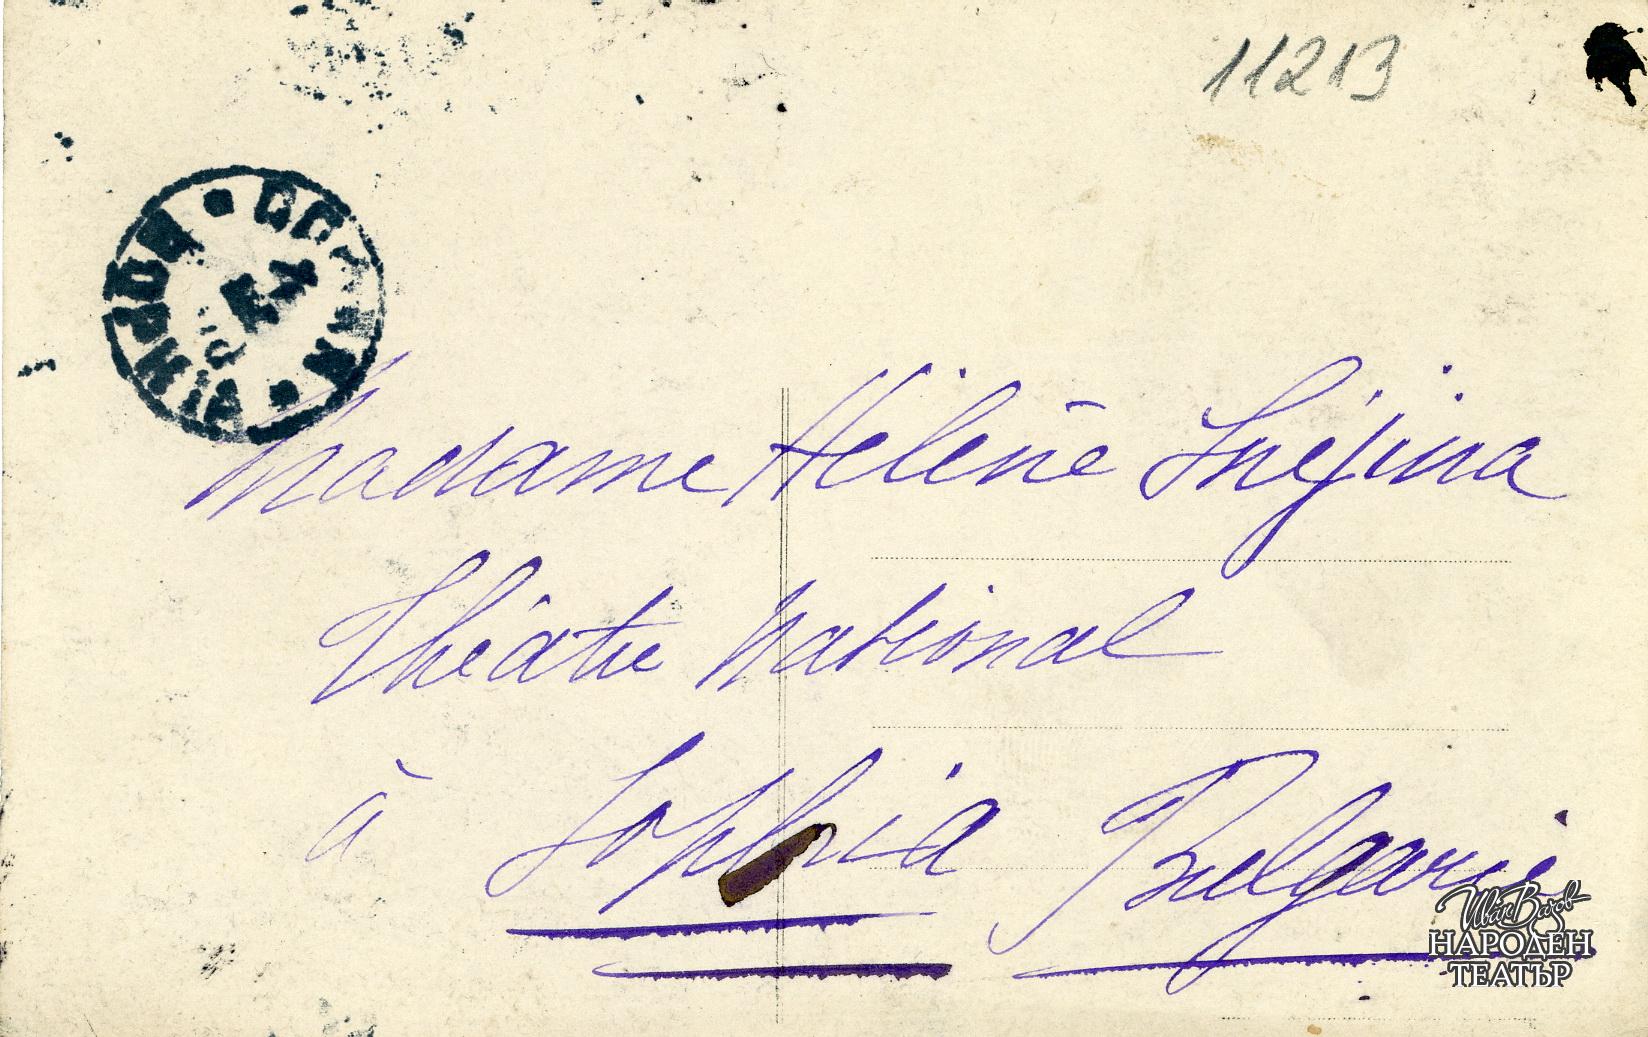 11213
Madame Hélène Snéjina
Théâtre National
à Sophia Bulgarie
Иван Вазов
НАРОДЕН
ТЕАТЪР